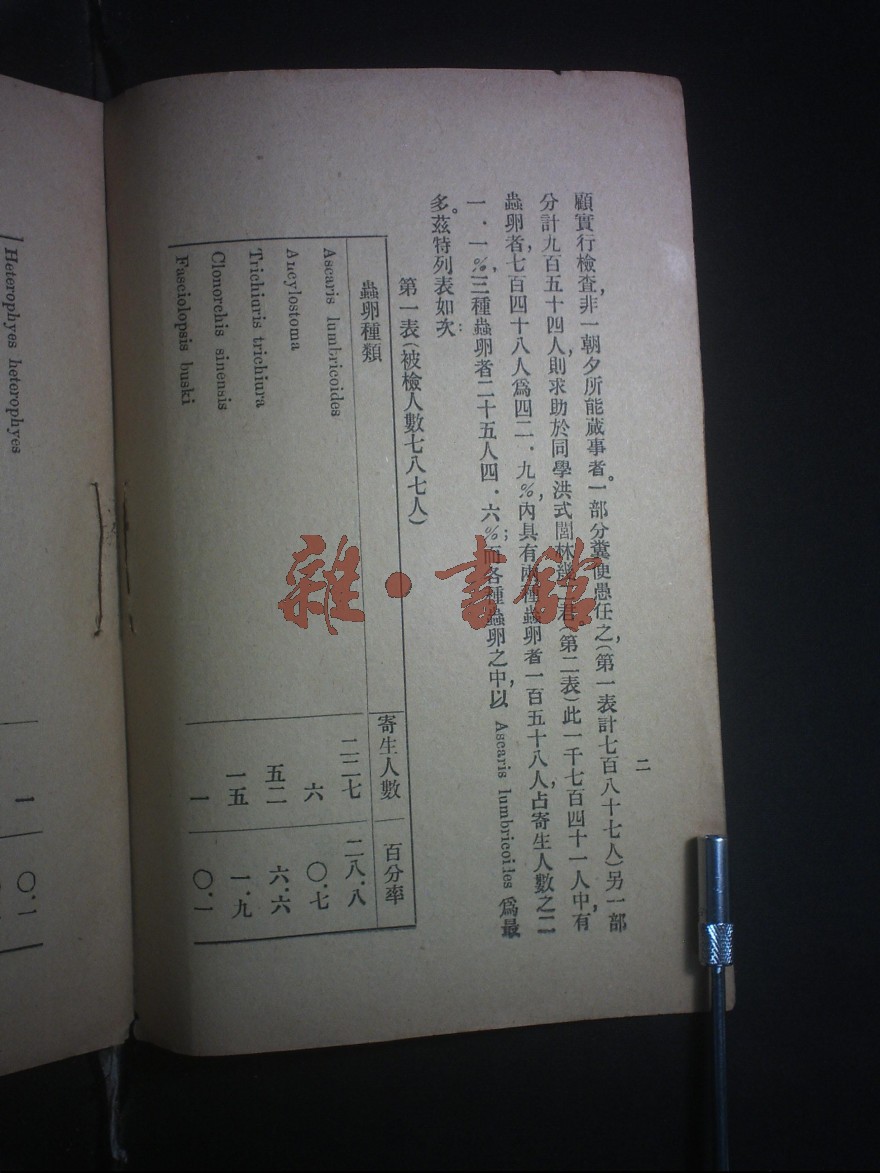 二
顧實行檢查,非一朝夕所能蕆事者。一部分糞便愚任之,(第一表計七百八十七人)另一部
分計九百五十四人,則求助於同學洪式閭林幾 君(第二表)此一千七百四十一人中,有
蟲卵者,七百四十八人爲四二.九%,內具有兩種蟲卵者一百五十八人,占寄生人數之二
一.一%,三種蟲卵者二十五人四.六%;而各種蟲卵之中,以 Ascaris lumbricoides 爲最
多。茲特列表如次:
第一表(被檢人數七八七人)
蟲卵種類 寄生人數 百分率
Ascaris lumbricoides 二二七 二八.八
Ancylostoma 六 〇.七
Trichiuris trichiura 五二 六.六
Clonorchis sinensis 一五 一.九
Fasciolopsis buski 一 〇.一
Heterophyes heterophyes 一 〇.一
雜·書館